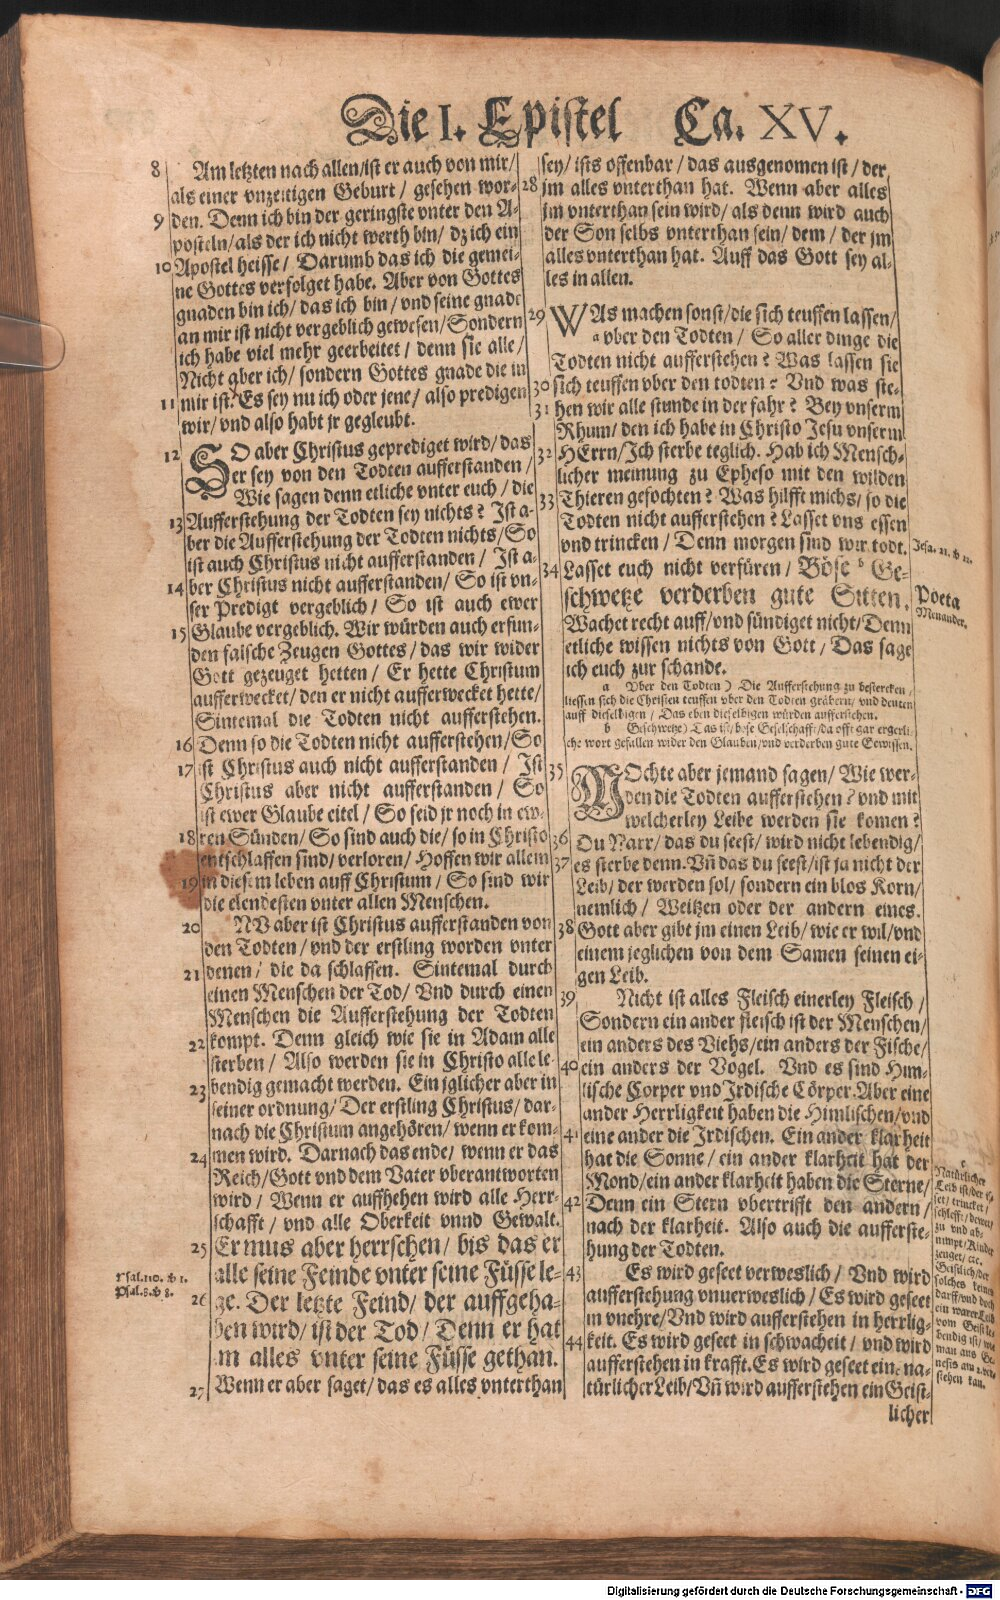 Die I. Epistel Ca. XV.
8 Am letzten nach allen/ist er auch von mir/
als einer vnzeitigen Geburt / gesehen wor-
9 den. Denn ich bin der geringste vnter den A-
posteln/als der ich nicht werth bin/ dz ich ein
10 Apostel heisse/ Darumb das ich die gemei-
ne Gottes verfolget habe. Aber von Gottes
gnaden bin ich/ das ich bin/ vnd seine gnade
an mir ist nicht vergeblich gewesen/Sondern
ich habe viel mehr geerbeitet/ denn sie alle/
Nicht aber ich/ sondern Gottes gnade die in
11 mir ist. Es sey nu ich oder jene/ also predigen
wir/ vnd also habt jr gegleubt.
12 SO aber Christus geprediget wird/ das
er sey von den Todten aufferstanden/
Wie sagen denn etliche vnter euch/ die
13 Aufferstehung der Todten sey nichts? Ist a-
ber die Aufferstehung der Todten nichts/So
ist auch Christus nicht aufferstanden / Ist a-
14 ber Christus nicht aufferstanden/ So ist vn-
ser Predigt vergeblich/ So ist auch ewer
15 Glaube vergeblich. Wir würden auch erfun-
den falsche Zeugen Gottes/ das wir wider
Gott gezeuget hetten/ Er hette Christum
aufferwecket/ den er nicht aufferwecket hette/
Sintemal die Todten nicht aufferstehen.
16 Denn so die Todten nicht aufferstehen/So
17 ist Christus auch nicht aufferstanden / Ist
Christus aber nicht aufferstanden / So
ist ewer Glaube eitel/ So seid jr noch in ew-
18 ren Sünden/ So sind auch die/ so in Christo
entschlaffen sind/ verloren/ Hoffen wir allein
19 in diesem leben auff Christum/ So sind wir
die elendesten vnter allen Menschen.
20 NV aber ist Christus aufferstanden von
den Todten/ vnd der erstling worden vnter
21 denen/ die da schlaffen. Sintemal durch
einen Menschen der Tod/ Vnd durch einen
Menschen die Aufferstehung der Todten
22 kompt. Denn gleich wie sie in Adam alle
sterben/ Also werden sie in Christo alle le-
23 bendig gemacht werden. Ein jglicher aber in
seiner ordnung/ Der erstling Christus/ dar-
nach die Christum angehören/ wenn er kom-
24 men wird. Darnach das ende/ wenn er das
Reich/Gott vnd dem Vater vberantworten
wird/ Wenn er auffheben wird alle Herr-
schafft/ vnd alle Oberkeit vnnd Gewalt.
25 Er mus aber herrschen/ bis das er
Psal. 110. v 1. alle seine Feinde vnter seine Füsse le-
Psal. 8. v 8. 26 ge. Der letzte Feind/ der auffgeha-
ben wird/ ist der Tod/ Denn er hat
jm alles vnter seine Füsse gethan.
27 Wenn er aber saget/ das es alles vnterthan
sey/ ists offenbar/ das ausgenomen ist/ der
28 jm alles vnterthan hat. Wenn aber alles
jm vnterthan sein wird/ als denn wird auch
der Son selbs vnterthan sein/ dem/ der jm
alles vnterthan hat. Auff das Gott sey al-
les in allen.
29 WAs machen sonst/die sich teuffen lassen/
a vber den Todten / So aller dinge die
Todten nicht aufferstehen? Was lassen sie
30 sich teuffen vber den todten? Vnd was ste-
31 hen wir alle stunde in der fahr? Bey vnserm
Rhum/ den ich habe in Christo Jesu vnserm
32 HErrn/Ich sterbe teglich. Hab ich Mensch-
licher meinung zu Epheso mit den wilden
33 Thieren gefochten? Was hilfft michs/ so die
Todten nicht aufferstehen? Lasset vns essen
vnd trincken/ Denn morgen sind wir todt. Jesa. 22. v 12.
34 Lasset euch nicht verfüren/ Böse b Ge-
schwetze verderben gute Sitten. Poeta
Wachet recht auff/vnd sündiget nicht/Denn Menander.
etliche wissen nichts von Gott/ Das sage
ich euch zur schande.
a Vber den Todten) Die Aufferstehung zu bestercken/
liessen sich die Christen teuffen vber den Todten gräbern/ vnd deuten
auff dieselbigen/ Das eben dieselbigen würden aufferstehen.
b Geschwetze) Das ist/ böse Gesellschafft/da offt gar ergerli-
che wort gefallen wider den Glauben/vnd verderben gute Gewissen.
35 MOchte aber jemand sagen/ Wie wer-
den die Todten aufferstehen? vnd mit
welcherley Leibe werden sie komen?
36 Du Narr/ das du seest/ wird nicht lebendig/
37 es sterbe denn. Vñ das du seest/ist ja nicht der
Leib/ der werden sol/ sondern ein blos Korn/
nemlich/ Weitzen oder der andern eines.
38 Gott aber gibt jm einen Leib/ wie er wil/vnd
einem jeglichen von dem Samen seinen ei-
gen Leib.
39 Nicht ist alles Fleisch einerley Fleisch/
Sondern ein ander fleisch ist der Menschen/
ein anders des Viehs/ein anders der Fische/
40 ein anders der Vogel. Vnd es sind Him-
lische Corper vnd Irdische Cörper. Aber eine
ander Herrligkeit haben die Himlischen/vnd
41 eine ander die Irdischen. Ein ander klarheit
hat die Sonne/ ein ander klarheit hat der
Mond/ein ander klarheit haben die Sterne/
42 Denn ein Stern vbertrifft den andern/
nach der klarheit. Also auch die aufferste-
hung der Todten.
43 Es wird geseet verweslich/ Vnd wird
aufferstehung vnuerweslich/ Es wird geseet
in vnehre/Vnd wird aufferstehen in herrlig-
44 keit. Es wird geseet in schwacheit/ vnd wird
aufferstehen in krafft. Es wird geseet eine na-
türlicher Leib/Vñ wird aufferstehen ein Geist-
licher
c
Natürlicher
Leib ist/ der is-
set/ trincket/
schlefft/ dewet/
zu vnd ab-
nimpt/Kinder
zeuget/ etc.
Geistlich/der
solches keines
darff/vnd doch
ein warer Leib
vom Geist le-
bendig ist/ wie
man aus Ge-
nesis am 2. ver-
stehen kan.
Digitalisierung gefördert durch die Deutsche Forschungsgemeinschaft - DFG